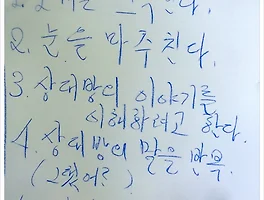 2. 눈을 마주친다.
3. 상대방의 이야기를
이해하려고 한다.
4. 상대방의 말을 반복.
(그랬어?)